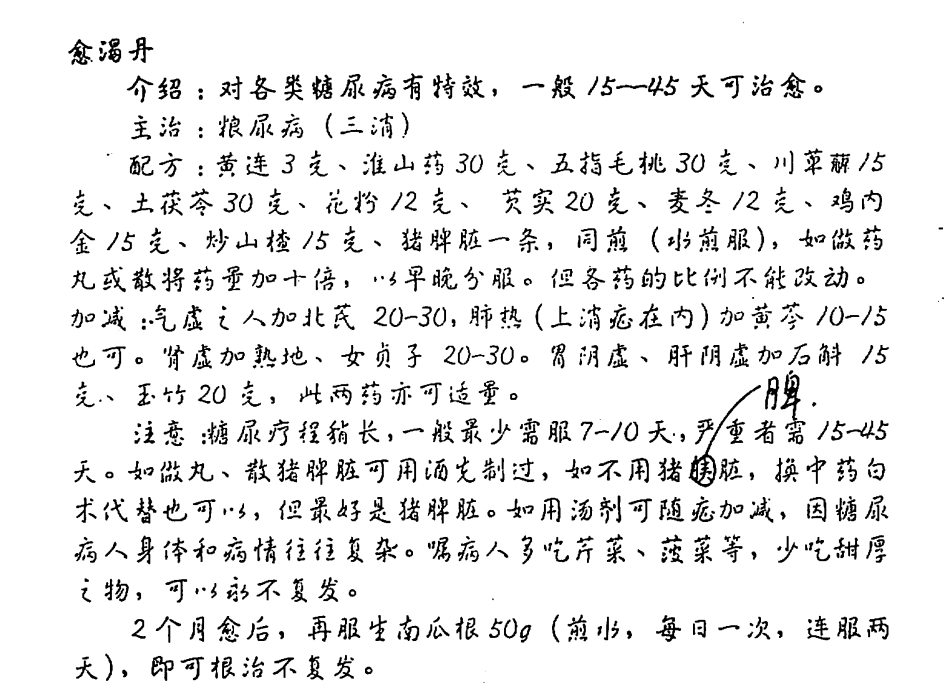 愈渴丹
介绍：对各类糖尿病有特效，一般15—45天可治愈。
主治：粮尿病（三消）
配方：黄连3克、淮山药30克、五指毛桃30克、川萆薢15
克、土茯苓30克、花粉12克、芡实20克、麦冬12克、鸡内
金15克、炒山楂15克、猪脾脏一条，同煎（水煎服），如做药
丸或散将药量加十倍，以早晚分服。但各药的比例不能改动。
加减：气虚之人加北芪20-30，肺热（上消症在内）加黄芩10-15
也可。肾虚加熟地、女贞子20-30。胃阴虚、肝阴虚加石斛15
克、玉竹20克，此两药亦可适量。
脾.
注意：糖尿疗程稍长，一般最少需服7-10天，严重者需15-45
天。如做丸、散猪脾脏可用酒先制过，如不用猪胰脏，换中药白
术代替也可以，但最好是猪脾脏。如用汤剂可随症加减，因糖尿
病人身体和病情往往复杂。嘱病人多吃芹菜、菠菜等，少吃甜厚
之物，可以永不复发。
2个月愈后，再服生南瓜根50g（煎水，每日一次，连服两
天），即可根治不复发。